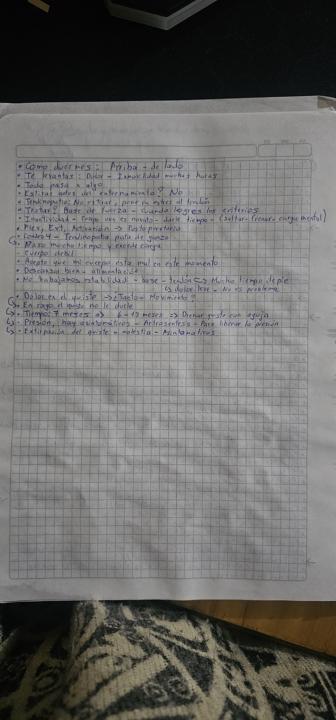 • Como duermes: Arriba - de lado
• Te levantas: Dolor - Inmovilidad muchas horas
• Todo pasa x algo
• Estirar antes del entrenamiento? No
• Tendinopatia: No estirar, pone en estres al tendón
• Testar: Base de fuerza - Cuando logres los criterios
• Inactividad - Tengo que es novato - darle tiempo - (Saltar - frenar - carga mental)
• Flex, Ext, Activación → Posto
• Tendinopatia pata de ganzo
Paso mucho tiempo y excede carga
• Cuerpo debil
• Acepte que mi cuerpo esta mal en este momento
• Descanso bien - alimentación
• No trabajamos estabilidad - base - tendón → Mucho tiempo de pie
↳ dolor leve - No es problema
• Dolor en el quiste → ¿Tacto - Movimiento?
En rayo el quiste no le duele
• Tiempo: 7 meses → 6 - 12 meses → Drenar quiste con aguja
• Presión, hay asintomaticos - Artrosentesis - Para liberar la presión
• Extirpación del quiste - molestia - Asintomaticos